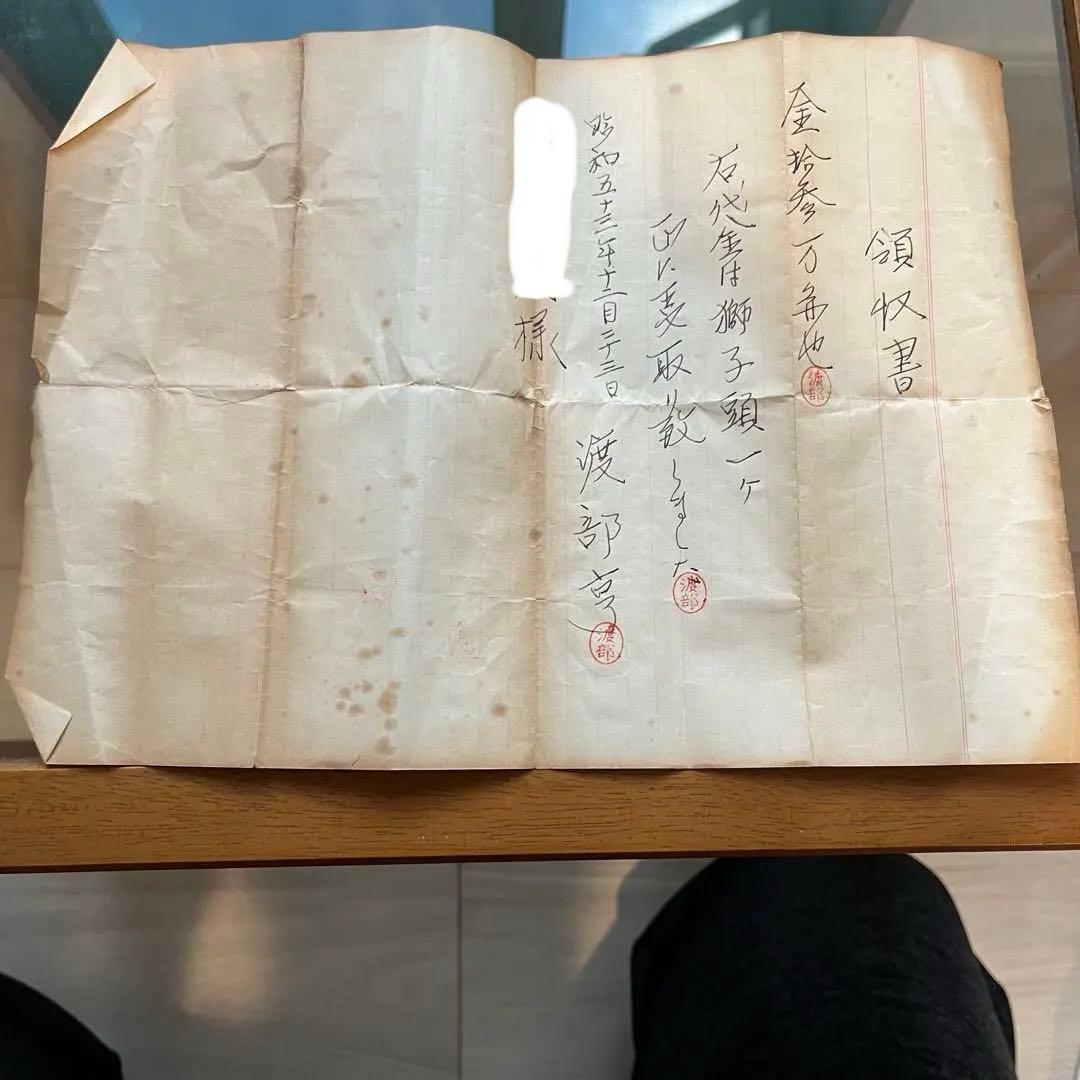 領収書
金拾参万也 渡部
右代金は獅子頭一ヶ
正に受取り致しました 渡部
昭和五十三年十二月二十三日 渡部亨 渡部
様